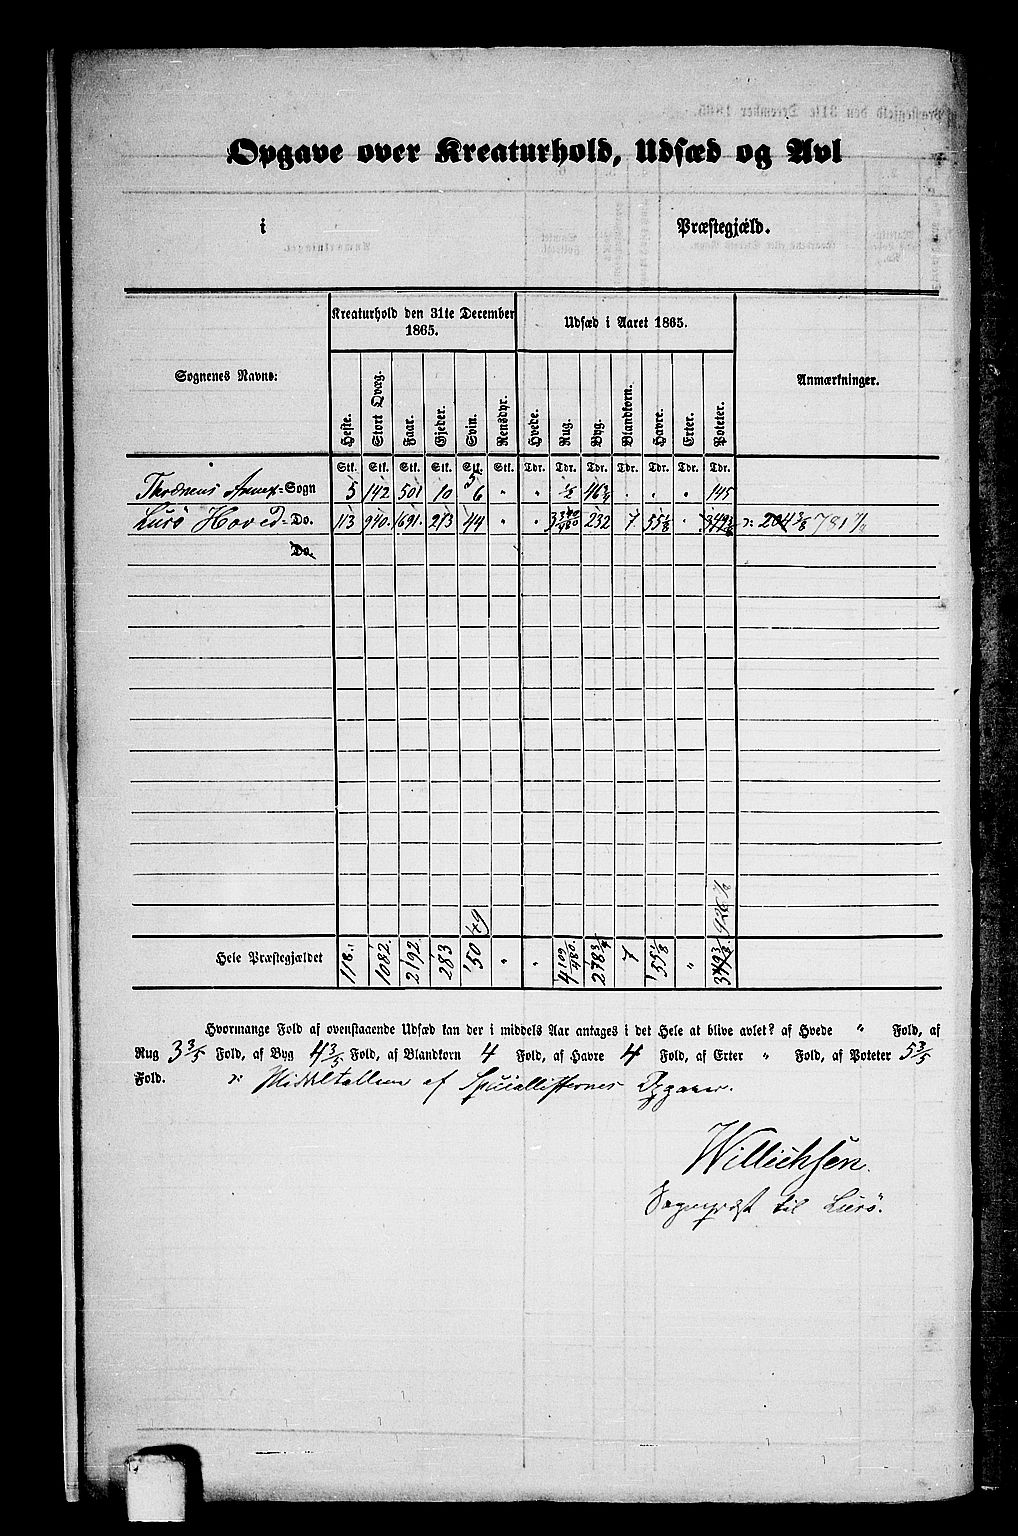 Opgave over Kreaturhold, Udsæd og Avl
i Præstegjæld.
Kreaturhold den 31te December 1865.
Udsæd i Aaret 1865.
Sognenes Navne:
Anmærkninger.
Heste. Stort Qvæg. Faar. Gjeder. Svin. Rensdyr. Hvede. Rug. Byg. Blandkorn. Havre. Erter. Poteter.
Stk. Stk. Stk. Stk. Stk. Stk. Tdr. Tdr. Tdr. Tdr. Tdr. Tdr. Tdr.
Annex-Sogn 5 142 501 10 5 6 " " 1/2 46 3/4 " " " 145
Lurö Hoved-Do. 113 940. 1691. 273 44 " " 232 7 55 1/8 " 204 3/8 781 1/2
Do.
49 926 1/2
Hele Præstegjældet 118. 1082. 2192 283 50 " " 4 109/480 278 3/4 7 55 1/8 "
Hvormange Fold af ovenstaaende Udsæd kan der i middels Aar antages i det Hele at blive avlet? af Hvede " Fold, af
Rug 3 3/5 Fold, af Byg 4 3/5 Fold, af Blandkorn 4 Fold, af Havre 4 Fold, af Erter " Fold, af Poteter 5 3/5
Fold. Middeltallene af Speciallisternes Opgaver.
Willichsen
Sogneprest til Lurö.